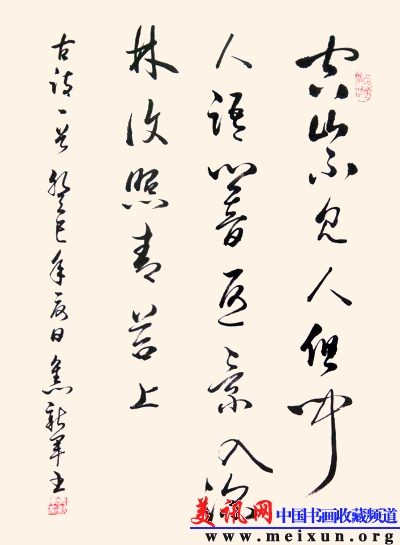 空山不见人但闻
人语響返景入深
林復照青苔上
古诗一首 癸巳年夏日 焦新军书
美讯网 中国书画收藏频道
www.meixun.org